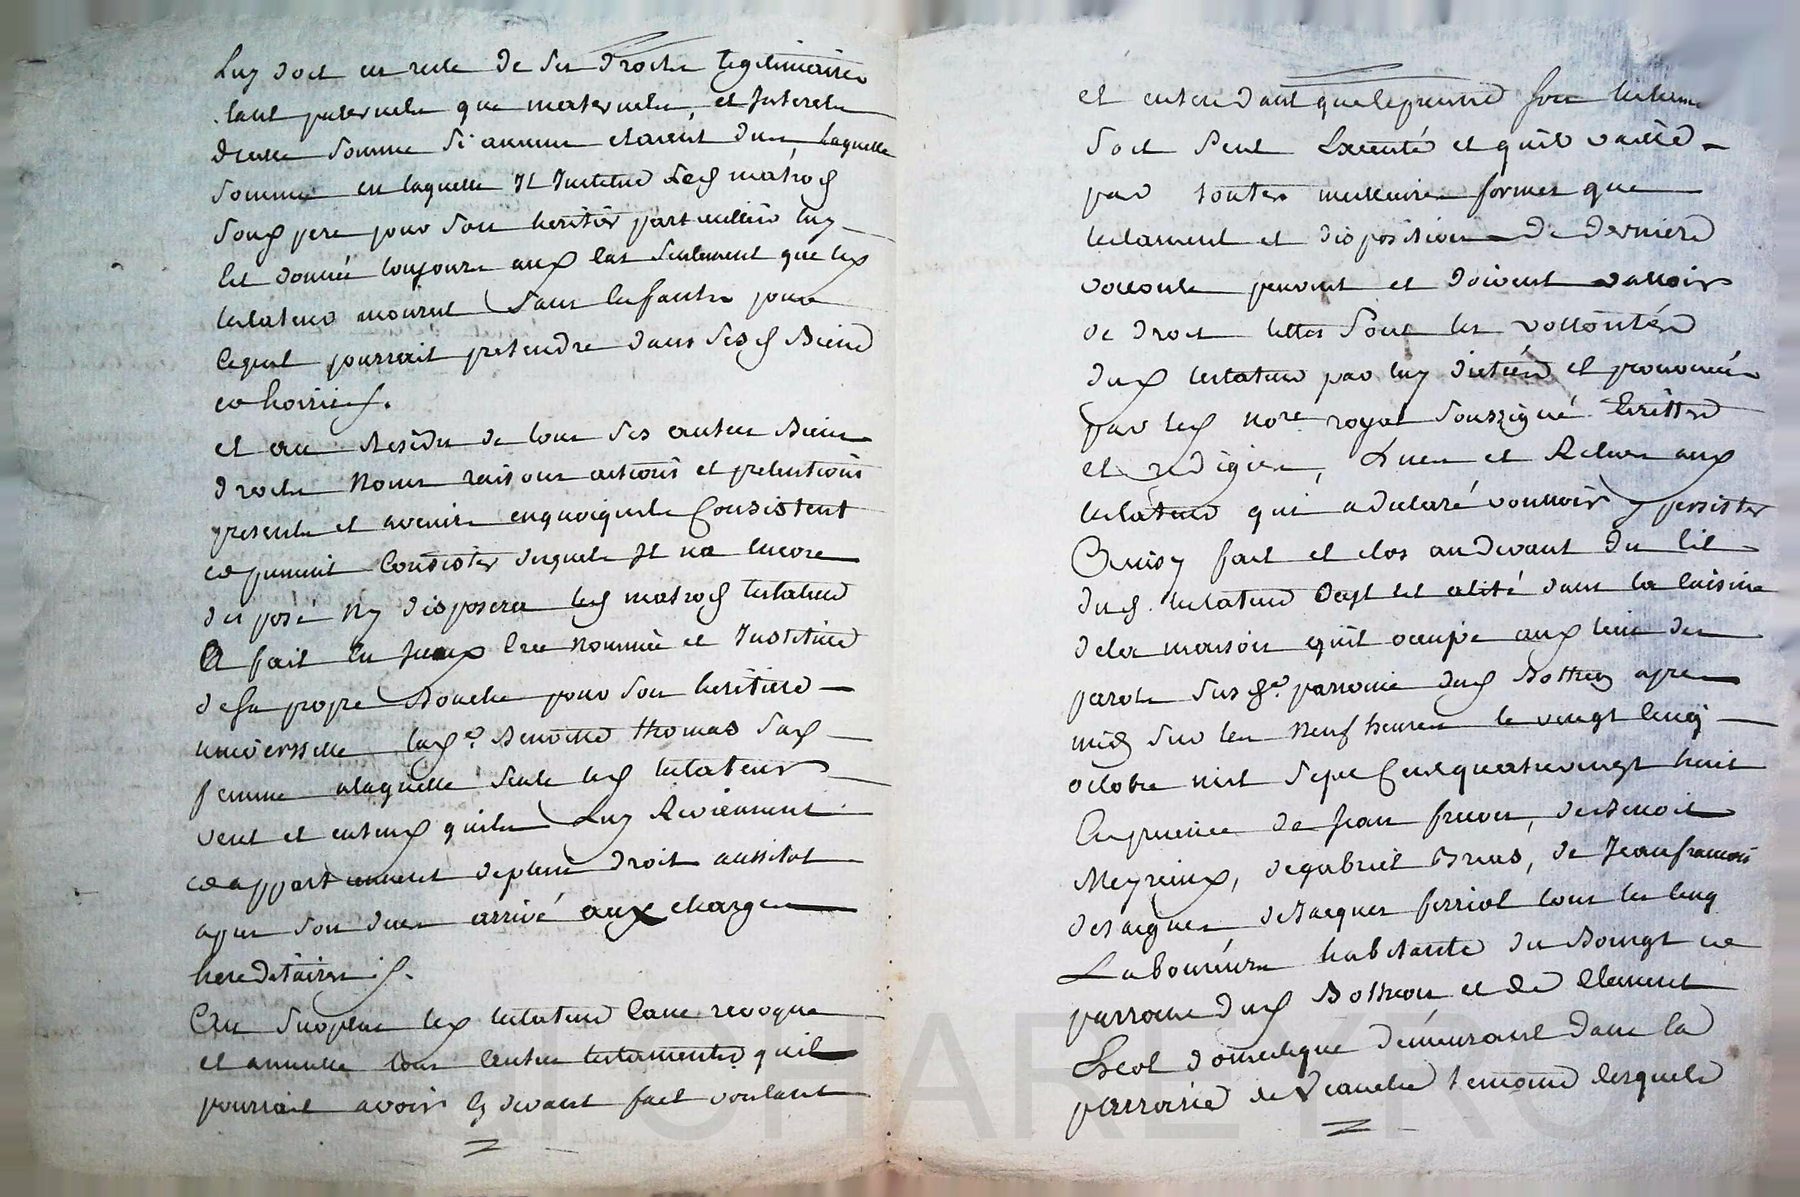 Luy doit en reste de ses droits legitimaires
tant paternels que maternels, et Interets
d'celle somme si aucuns etaient dus, laquelle
somme en laquelle Il Institue led matrod
soux pere pour son heritier particullier luy
Est donnée toujours aux cas seulement que lex
testateur mourut sans Enfants pour
Lequel pourrait pretendre dans sesd Biens
et hoiries.
et au Residu de tous ses autres Biens
droits Noms raisons actions et pretentions
presents et avenirs enquoiquils Consistent
et puissent Consister desquels Il na Encore
disposé Ny disposera led matrod testateur
A fait Lu Jceux Cree nommée et Instituée
de sa propre Bouche pour son heritiere
universselle lad.e Benoitte thomas sad
femme a laquelle seule led testateur
veut et entend quils Luy Reviennent
et appartiennent de plein droit aussitot
apres son deces arrivé aux charges
hereditaires.
Au surplus lex testateur Casse revoque
et annulle tous autres testaments quil
pourrait avoir Cy devant fait voulant
et entendant que le present son testame
soit seul Executé et quil vaille
par toutes meilleures formes que
testament et disposition de derniere
vollonte peuvent et doivent valloir
de droit telles sont les vollontés
dux testateur par luy dictées et prononcées
par led Nore royal soussigné Ecrittes
et redigées, Lues et Relues aux
testateur qui a declaré voulloir y persister
Ainsy fait et clos au devant du lit
dud. testateur ou il est alité dans la Cuisine
de la maison quil occupe aux lieu de
parot susd.e parroisse dud Bothieu apres
midy sur les Neuf heures le vingt Cinq
octobre mil sept Cent quatrevingt huit
En presence de Jean freron, de Benoit
Meyrieux, de gabriel Brias, de Jean francois
desaignes de Jacques ferriol tous les Cinq
Laboureurs habitants du Bourgt et
parroisse dud Botheon et de Clement
Escot domestique demeurant dans la
parroisse de Veauche temoins lesquels